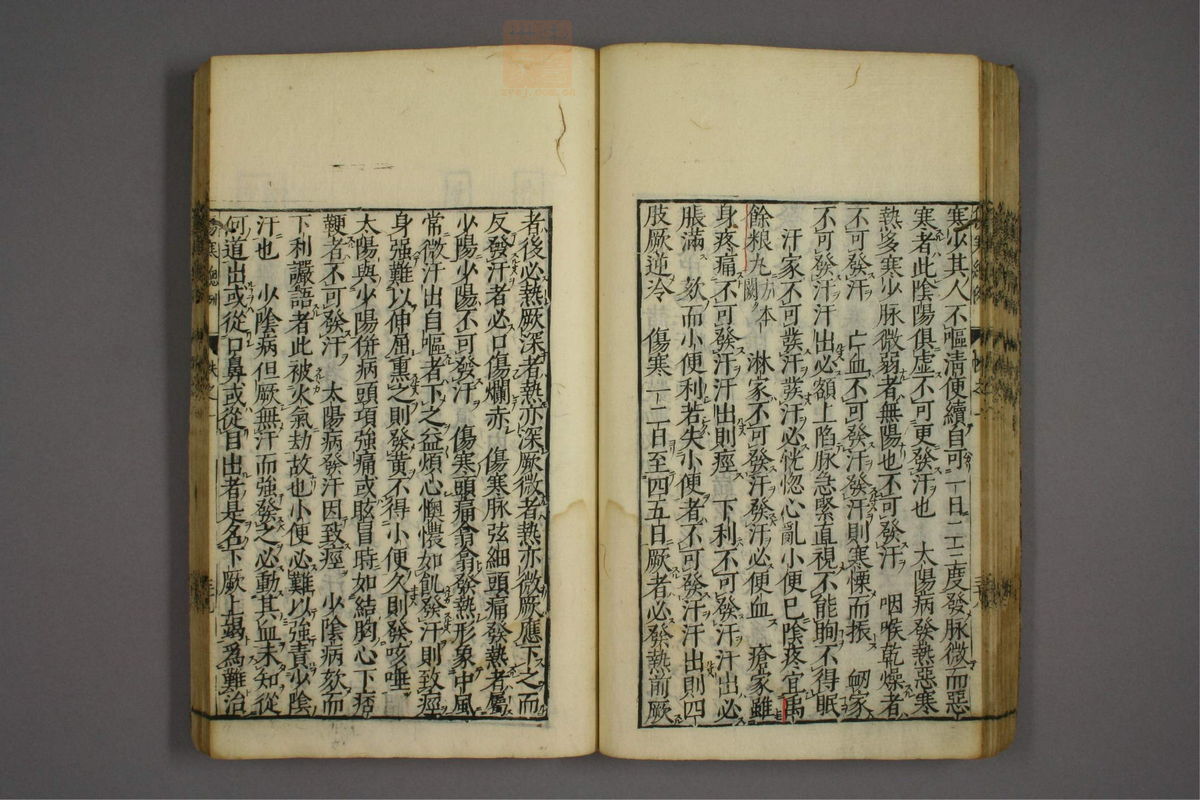 寒少其人不嘔清便續自可一日二三度發脉微而惡
寒者此陰陽俱虛不可更發汗也　太陽病發熱惡寒
熱多寒少脉微弱者無陽也不可發汗　咽喉乾燥者
不可發汗　亡血不可發汗發汗則寒慄而振　衂家
不可發汗汗出必額上陷脉急緊直視不能眴不得眠
汗家不可發汗發汗必恍惚心亂小便已陰疼宜禹
餘粮丸方本闕　淋家不可發汗發汗必便血　瘡家雖
身疼痛不可發汗汗出則痙　下利不可發汗汗出必
脹滿　欬而小便利若失小便者不可發汗汗出則四
肢厥逆冷　傷寒一二日至四五日厥者必發熱前厥
者後必熱厥深者熱亦深厥微者熱亦微厥應下之而
反發汗者必口傷爛赤　傷寒脉弦細頭痛發熱者屬
少陽少陽不可發汗　傷寒頭痛翕翕發熱形象中風
常微汗出自嘔者下之益煩心懊憹如飢發汗則致痙
身强難以伸屈熏之則發黃不得小便久則發咳唾
太陽與少陽併病頭項強痛或眩冒時如結胸心下痞
鞕者不可發汗　太陽病發汗因致痙　少陰病欬而
下利讝語者此被火氣劫故也小便必難以強責少陰
汗也　少陰病但厥無汗而強發之必動其血未知從
何道出或從口鼻或從目出者是名下厥上竭爲難治